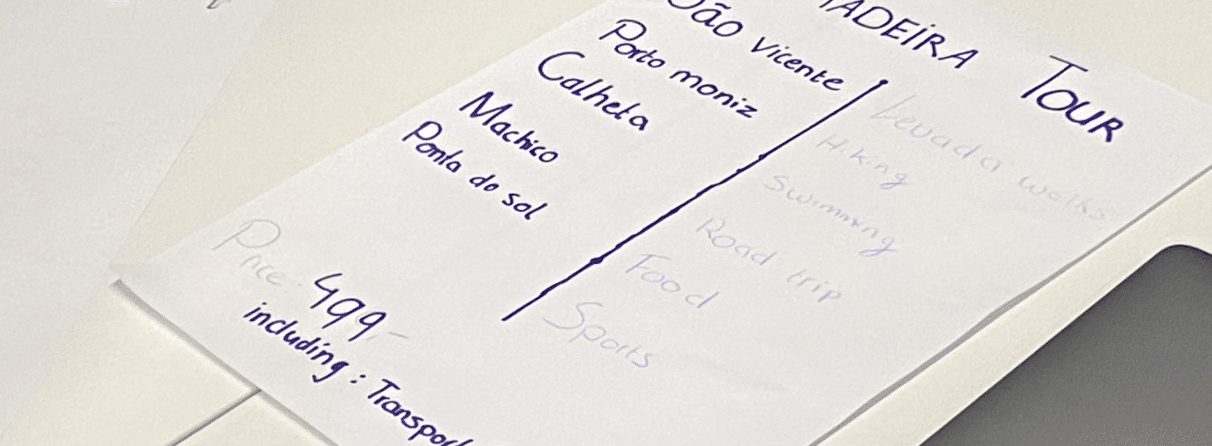 MADEIRA TOUR
São Vicente
Porto moniz
Calheta
Machico
Ponta do sol
Levada walks
Hiking
Swimming
Road trip
Food
Sports
Price: 499,-
including: Transport